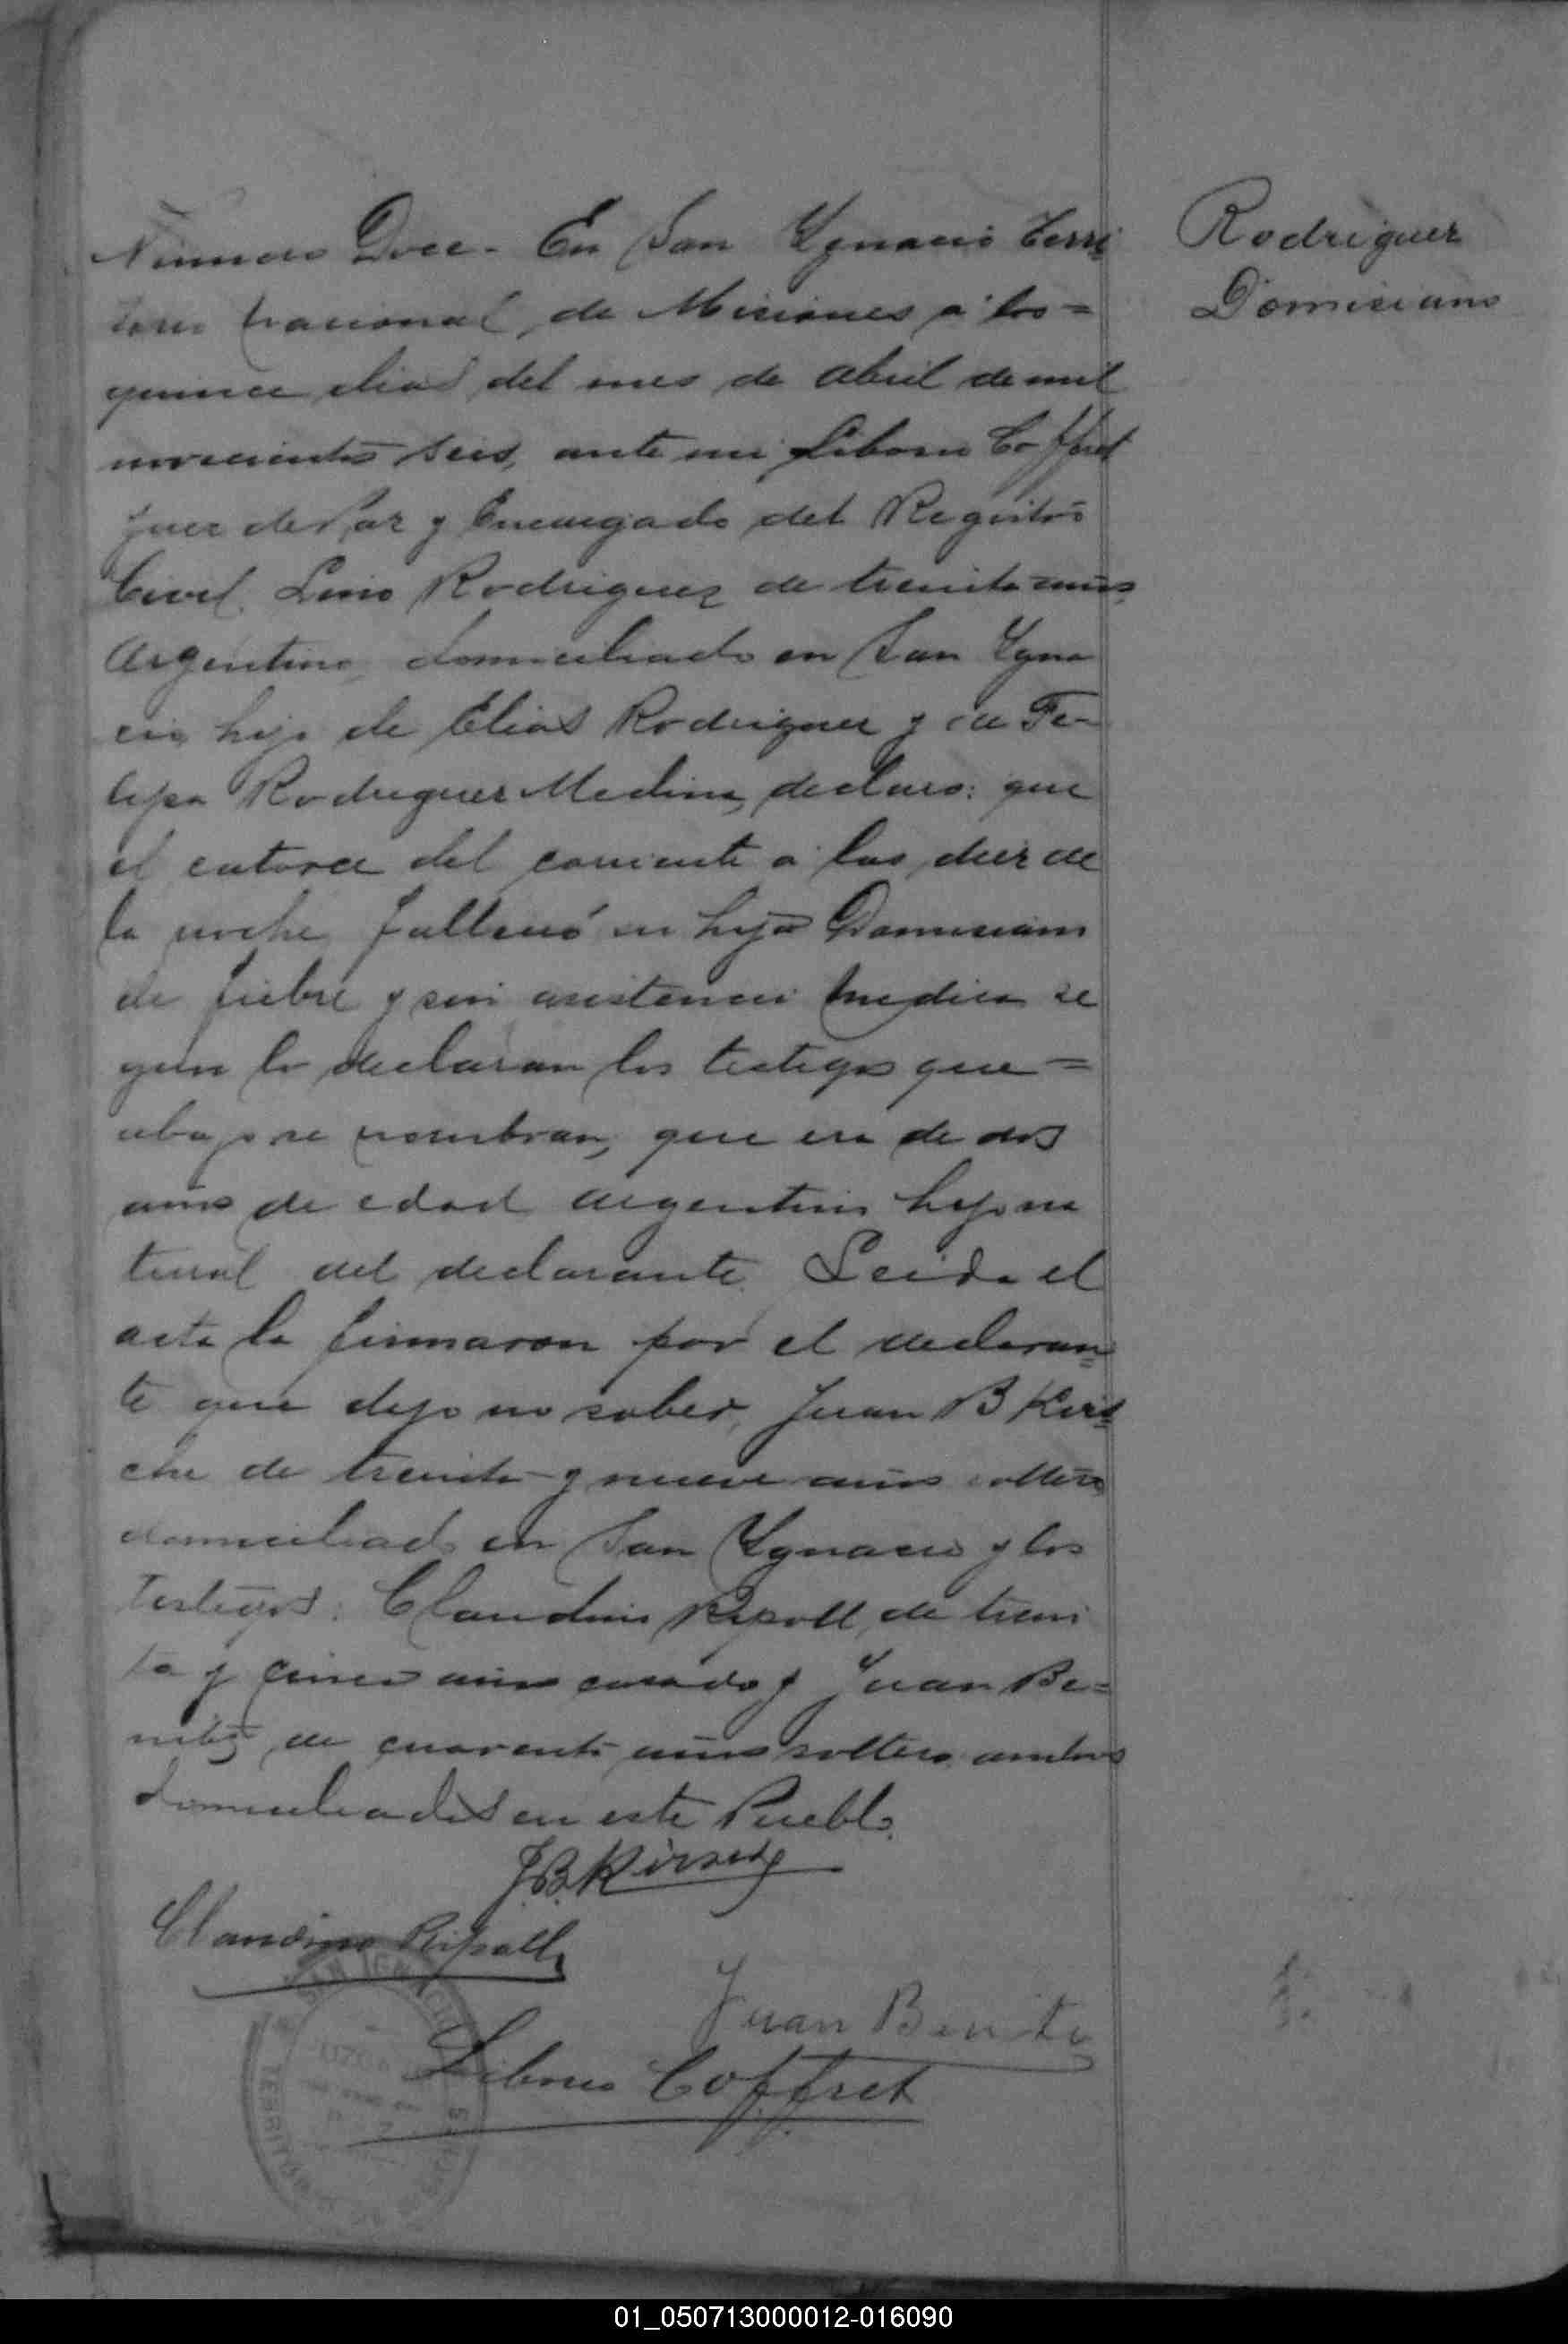 Rodriguez
Domiciano
Número Doce. En San Ygnacio Terri
torio nacional, de Misiones a los =
quince dias del mes de Abril de mil
novecientos seis, ante mi Liborio Coffret
Juez de Paz y Encargado del Registro
Civil. Lino Rodriguez de treinta años
Argentino domiciliado en San Ygna
cio, hijo de Elias Rodriguez y de Fe-
lipa Rodriguez Medina, declaro: que
el catorce del corriente a las diez de
la noche falleció su hijo Domiciano
de fiebre y sin asistencia medica se
gun lo declaran los testigos que =
abajo se nombran, que era de dos
años de edad argentino hijo na
tural del declarante. Leida el
acta la firmaron por el declaran
te que dijo no saber, Juan B Kirs
che de treinta y nueve años soltero
domiciliado en San Ygnacio y los
testigos: Claudino Ripoll, de trein
ta y cinco años casado y Juan Be=
nitez, de cuarenta años soltero ambos
domiciliados en este Pueblo.
J.B. Kirsch
Claudino Ripoll
Juan Benite
Liborio Coffret
SAN IGNACIO
TERRITORIO DE MISIONES
01_050713000012-016090